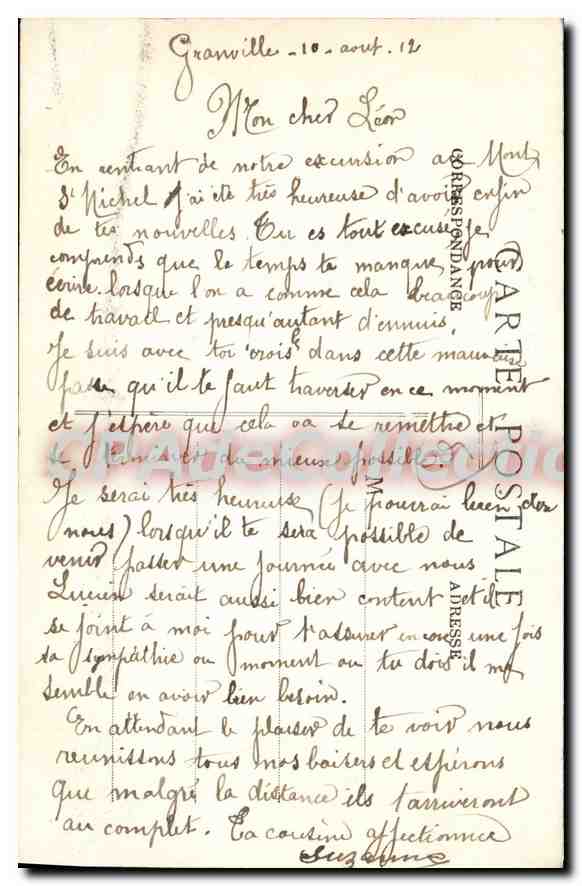 Granville - 10 - aout. 12
Mon cher Léon
En rentrant de notre excursion au Mont
St Michel j'ai été très heureuse d'avoir enfin
de tes nouvelles. Tu es tout excusé, je
comprends que le temps te manque pour
écrire lorsque l'on a comme cela beaucoup
de travail et presqu'autant d'ennuis.
Je suis avec toi crois le dans cette mauvaise
passe qu'il te faut traverser en ce moment
et j'espère que cela va se remettre et
se terminer du mieux possible.
Je serai très heureuse (je pourrai bien dire
nous) lorsqu'il te sera possible de
venir passer une journée avec nous
Lucien serait aussi bien content et il
se joint à moi pour t'assurer encore une fois
sa sympathie au moment ou tu dois il me
semble en avoir bien besoin.
En attendant le plaisir de te voir nous
reunissons tous nos baisers et espérons
que malgré la distance ils t'arriveront
au complet. Ta cousine affectionnée
Suzanne
CARTE POSTALE
CORRESPONDANCE
ADRESSE
M
CPADeCollection